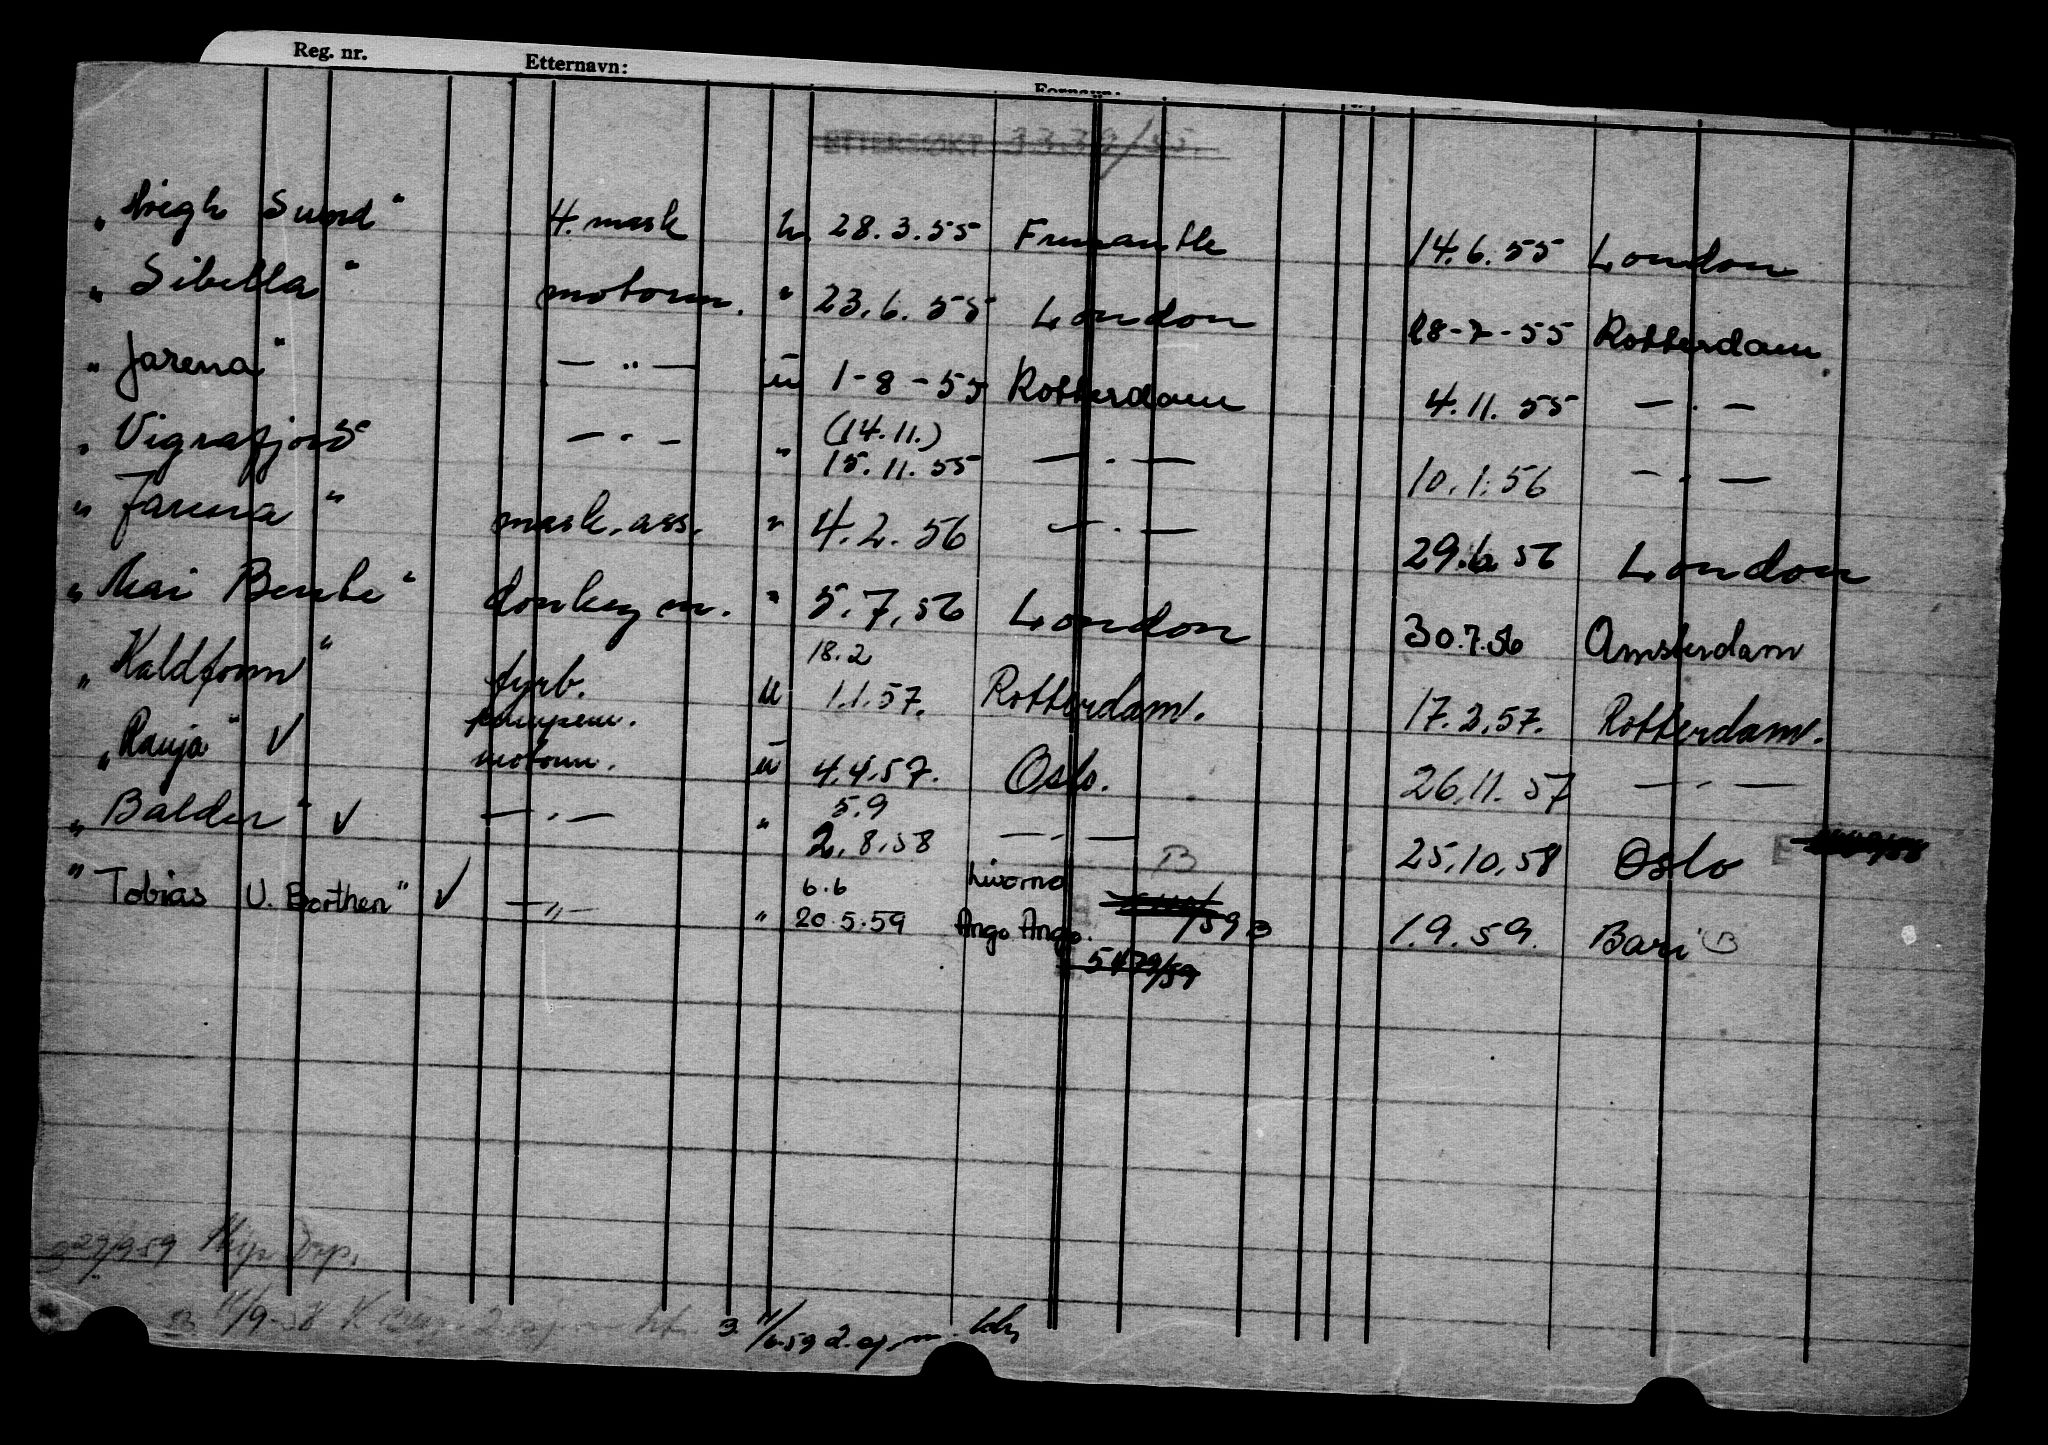 Reg. nr. Etternavn: Fornavn:
ETTERSØKT 3339/55.
"Høegh Sund" 4. mask u. 28.3.55 Fremantle 14.6.55 London
"Sibella" motorm. " 23.6.55 London 28-7-55 Rotterdam
"Jarena" — " — u 1-8-55 Rotterdam 4.11.55 — " —
(14.11.)
"Vigrafjord — " — " 15.11.55 — " — 10.1.56 — " —
"Jarena" mask. ass. " 4.2.56 — " — 29.6.56 London
"Mai Bente" donkeym. " 5.7.56 London 30.7.56 Amsterdam
18.2
"Kaldfonn" fyrb. u 1.1.57. Rotterdam. 17.2.57. Rotterdam.
pumpem.
"Ranja" ✓ motorm. u 4.4.57. Oslo. 26.11.57 — " —
5.9
"Balder" ✓ — " — " 2.8.58 — " — 25.10.58 Oslo
B
6.6 Livorno
"Tobias U. Borthen" ✓ — " — " 20.5.59 Ango Ango. /59 B 1.9.59. Bari B
5479/59
29/9 59 Skip Dep.
11/6-59 2. o